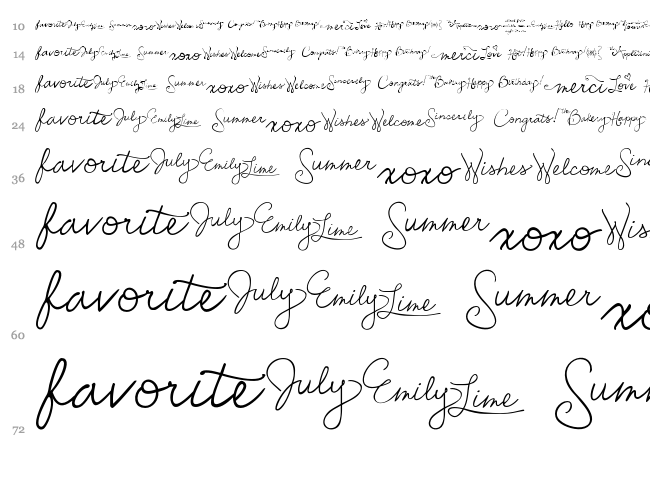 10 favorite July Emily Lime Summer xoxo Wishes Welcome Sincerely Congrats! The Bakery Happy Birthday! merci Love
14 favorite July Emily Lime Summer xoxo Wishes Welcome Sincerely Congrats! The Bakery Happy Birthday! merci Love
18 favorite July Emily Lime Summer xoxo Wishes Welcome Sincerely Congrats! The Bakery Happy Birthday! merci Love
24 favorite July Emily Lime Summer xoxo Wishes Welcome Sincerely Congrats! The Bakery Happy
36 favorite July Emily Lime Summer xoxo Wishes Welcome Sinc
48 favorite July Emily Lime Summer xoxo Wis
60 favorite July Emily Lime Summer xo
72 favorite July Emily Lime Summ